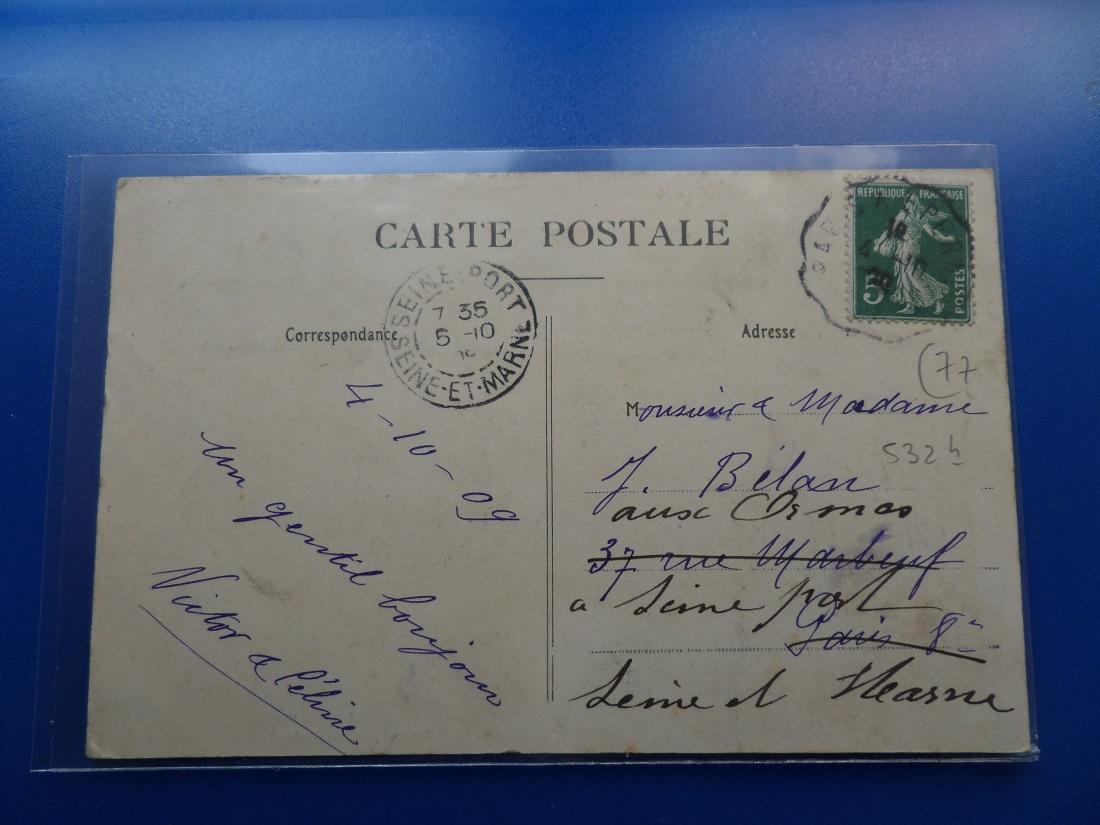 CARTE POSTALE
REPUBLIQUE FRANÇAISE
5
POSTES
SEINE-PORT
7 35
5 -10
SEINE-ET-MARNE
Correspondance
Adresse
4-10-09
un gentil bonjour
Victor & Céline
(77
Monsieur & Madame
532 h
J. Bélan
aux Ormes
37 rue Marbeuf
a Seine port
Paris 8e
Seine et Marne